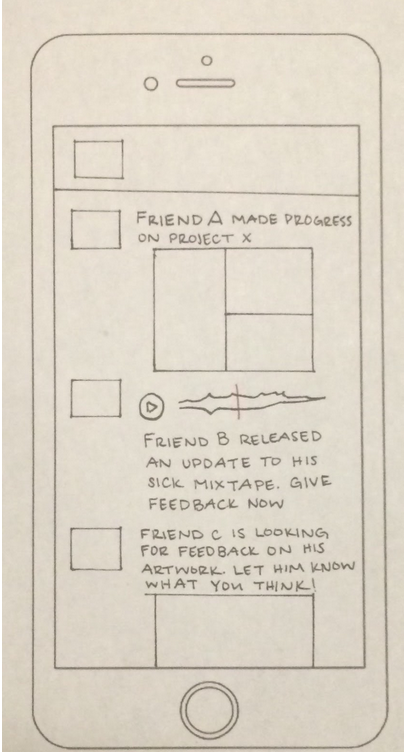 FRIEND A MADE PROGRESS
ON PROJECT X
FRIEND B RELEASED
AN UPDATE TO HIS
SICK MIXTAPE. GIVE
FEEDBACK NOW
FRIEND C IS LOOKING
FOR FEEDBACK ON HIS
ARTWORK. LET HIM KNOW
WHAT YOU THINK!